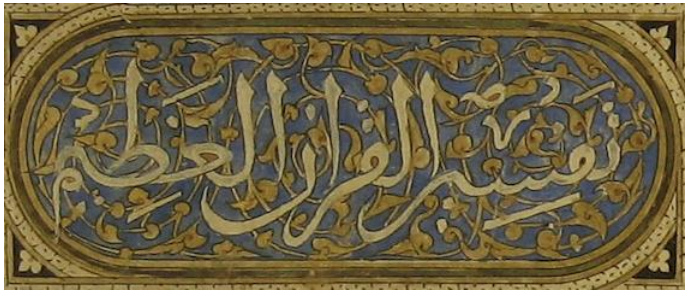 تفسير القران العظيم